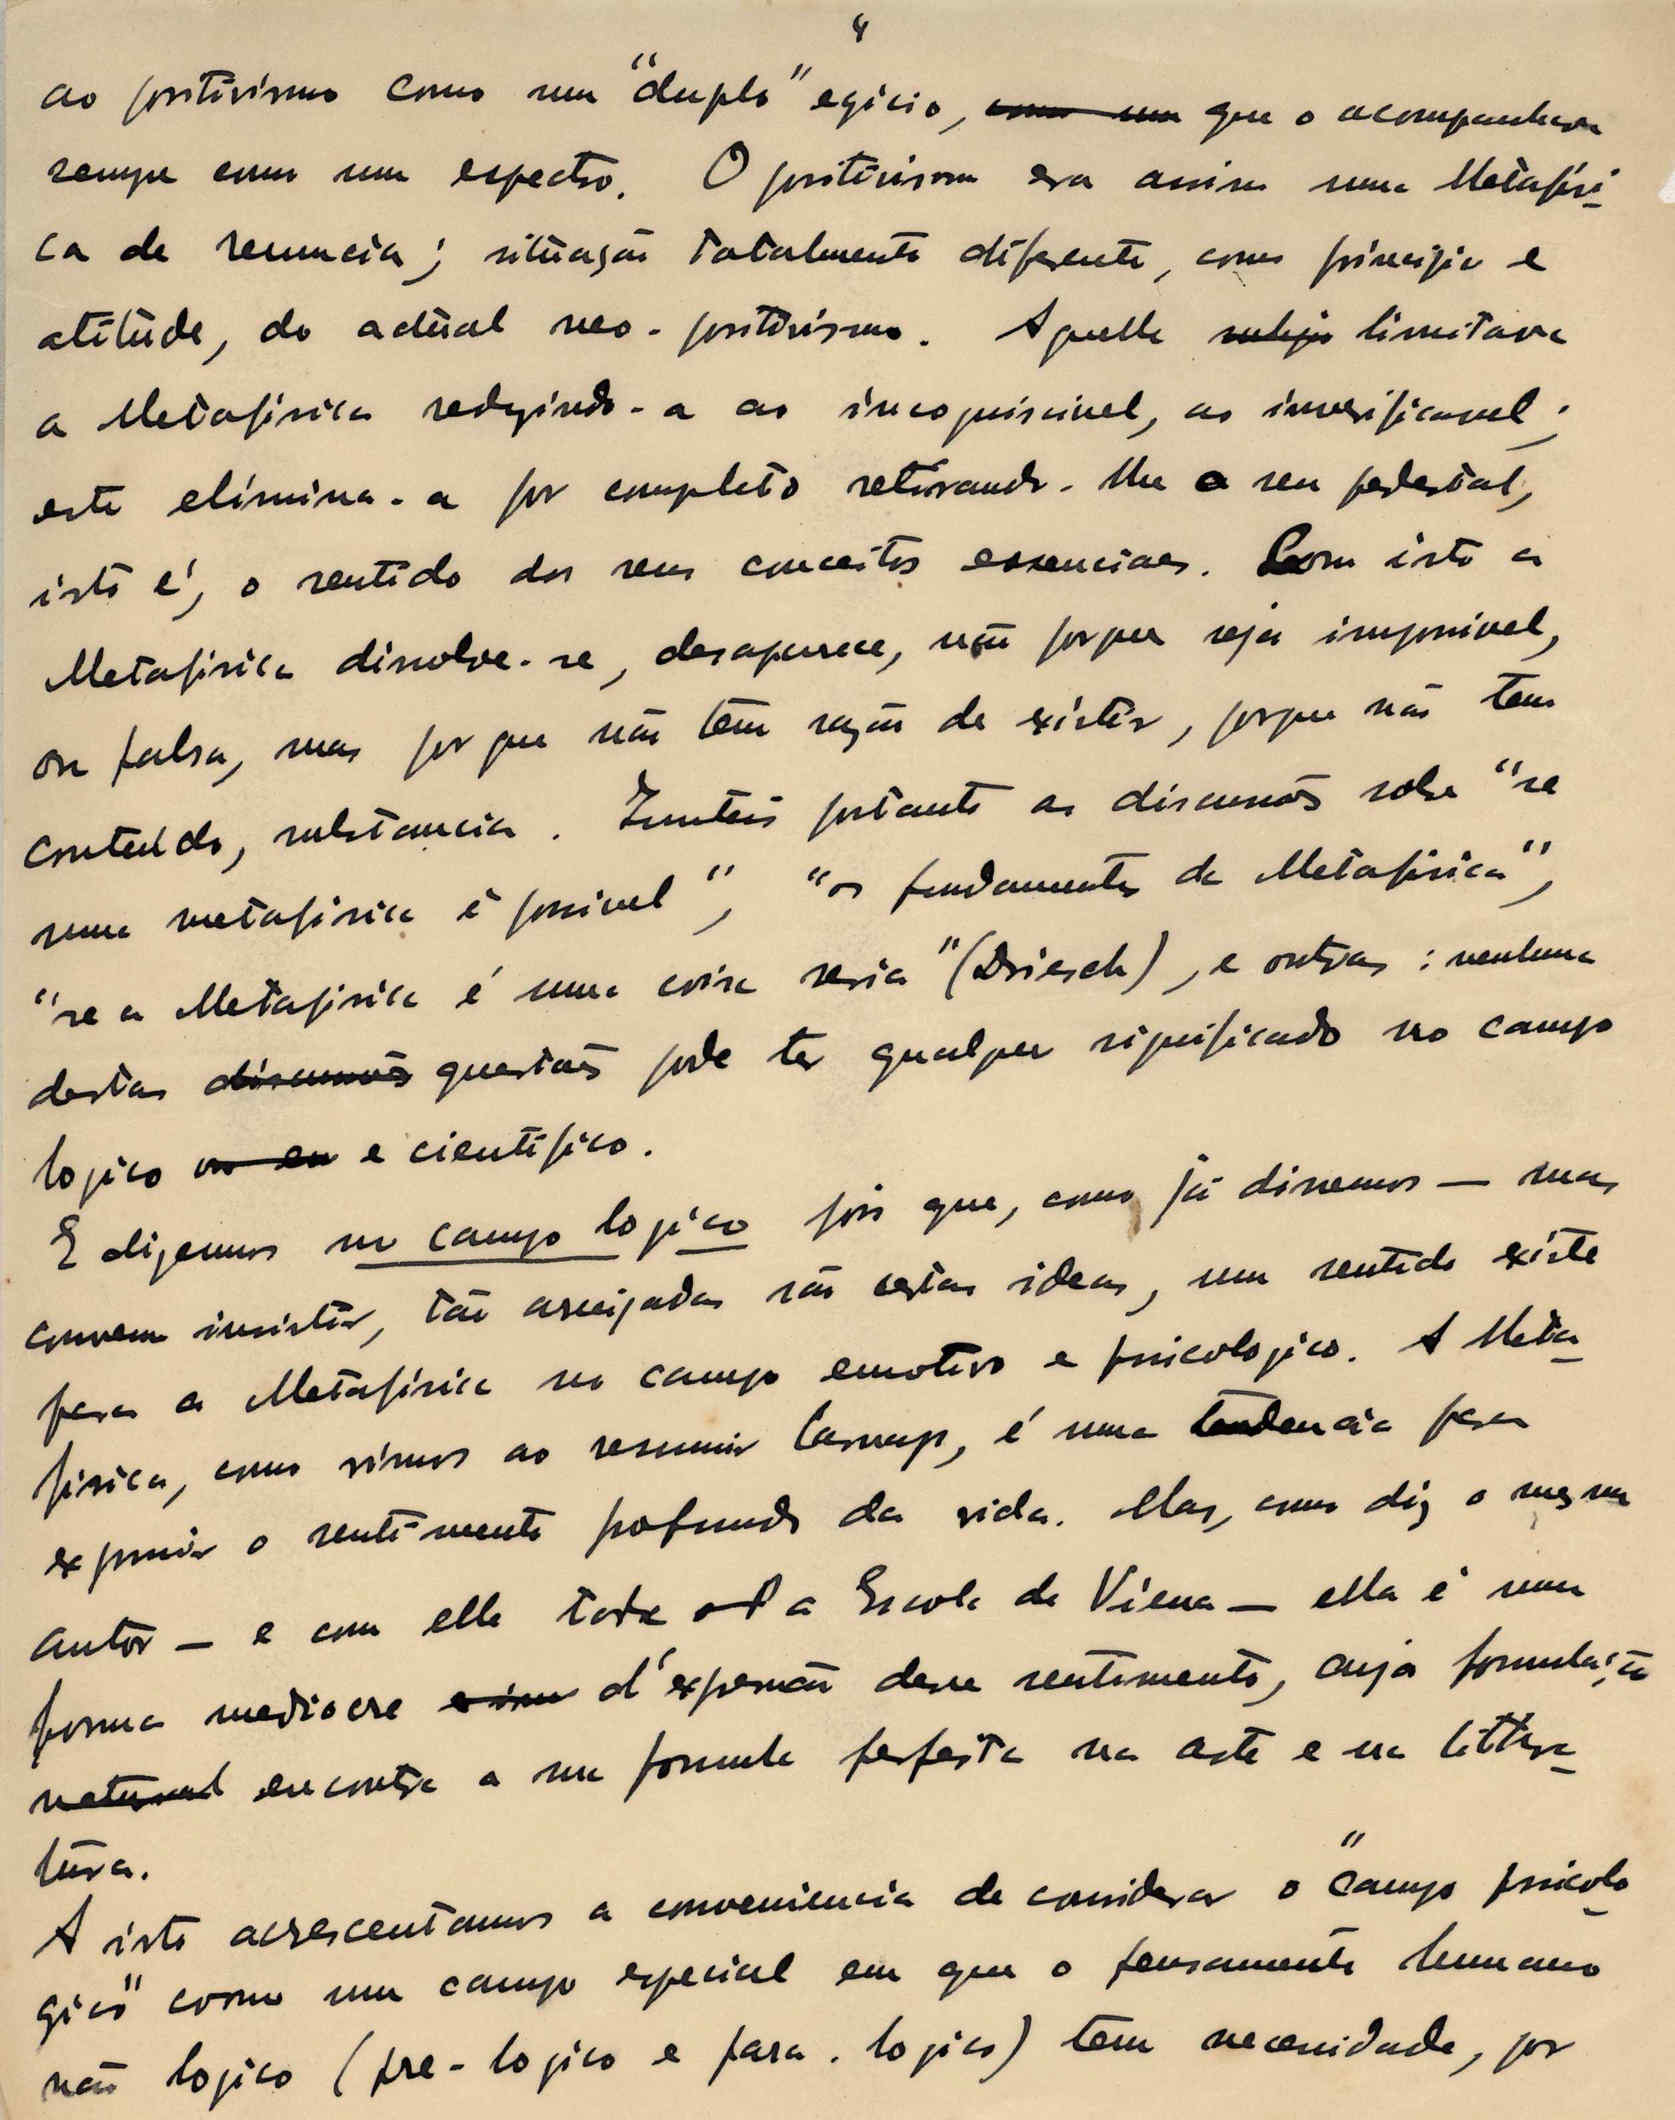 4
ao positivismo como um "duplo" egicio, como um que o acompanhava
sempre como um espectro. O positivismo era assim uma Metafisi-
ca de renuncia; situação totalmente diferente, como principio e
atitude, do actual neo-positivismo. Aquelle limitava
a Metafisica redusindo-a ao incognoscivel, ao inverificavel;
este elimina-a por completo retirando-lhe o seu pedestal,
isto é, o sentido dos seus conceitos essenciaes. Com isto a
Metafisica dissolve-se, desaparece, não porque seja impossivel,
ou falsa, mas porque não tem razão de existir, porque não tem
conteúdo, substancia. Inuteis portanto as discussões sobre "se
uma metafisica é possivel", "os fundamentos da Metafisica",
"se a Metafisica é uma coisa seria" (Driesch), e outras: nenhuma
destas discussões questões pode ter qualquer significado no campo
logico ou em e cientifico.
E digemos no campo logico pois que, como já dissemos — mas
convem insistir, tão arreigadas são certas ideas, um sentido existe
para a Metafisica no campo emotivo e psicologico. A Meta-
fisica, como vimos ao resumir Carnap, é uma tendencia para
exprimir o sentimento profundo da vida. Mas, como diz o mesmo
autor — e com elle toda a Escola de Viena — ella é uma
forma mediocre d'expressão desse sentimento, cuja formulação
natural encontra a sua formula perfeita na arte e na littera-
tura.
A isto acrescentamos a conveniencia de considerar o "campo psicolo-
gico" como um campo especial em que o pensamento humano
não logico (pre-logico e para-logico) tem necessidade, por